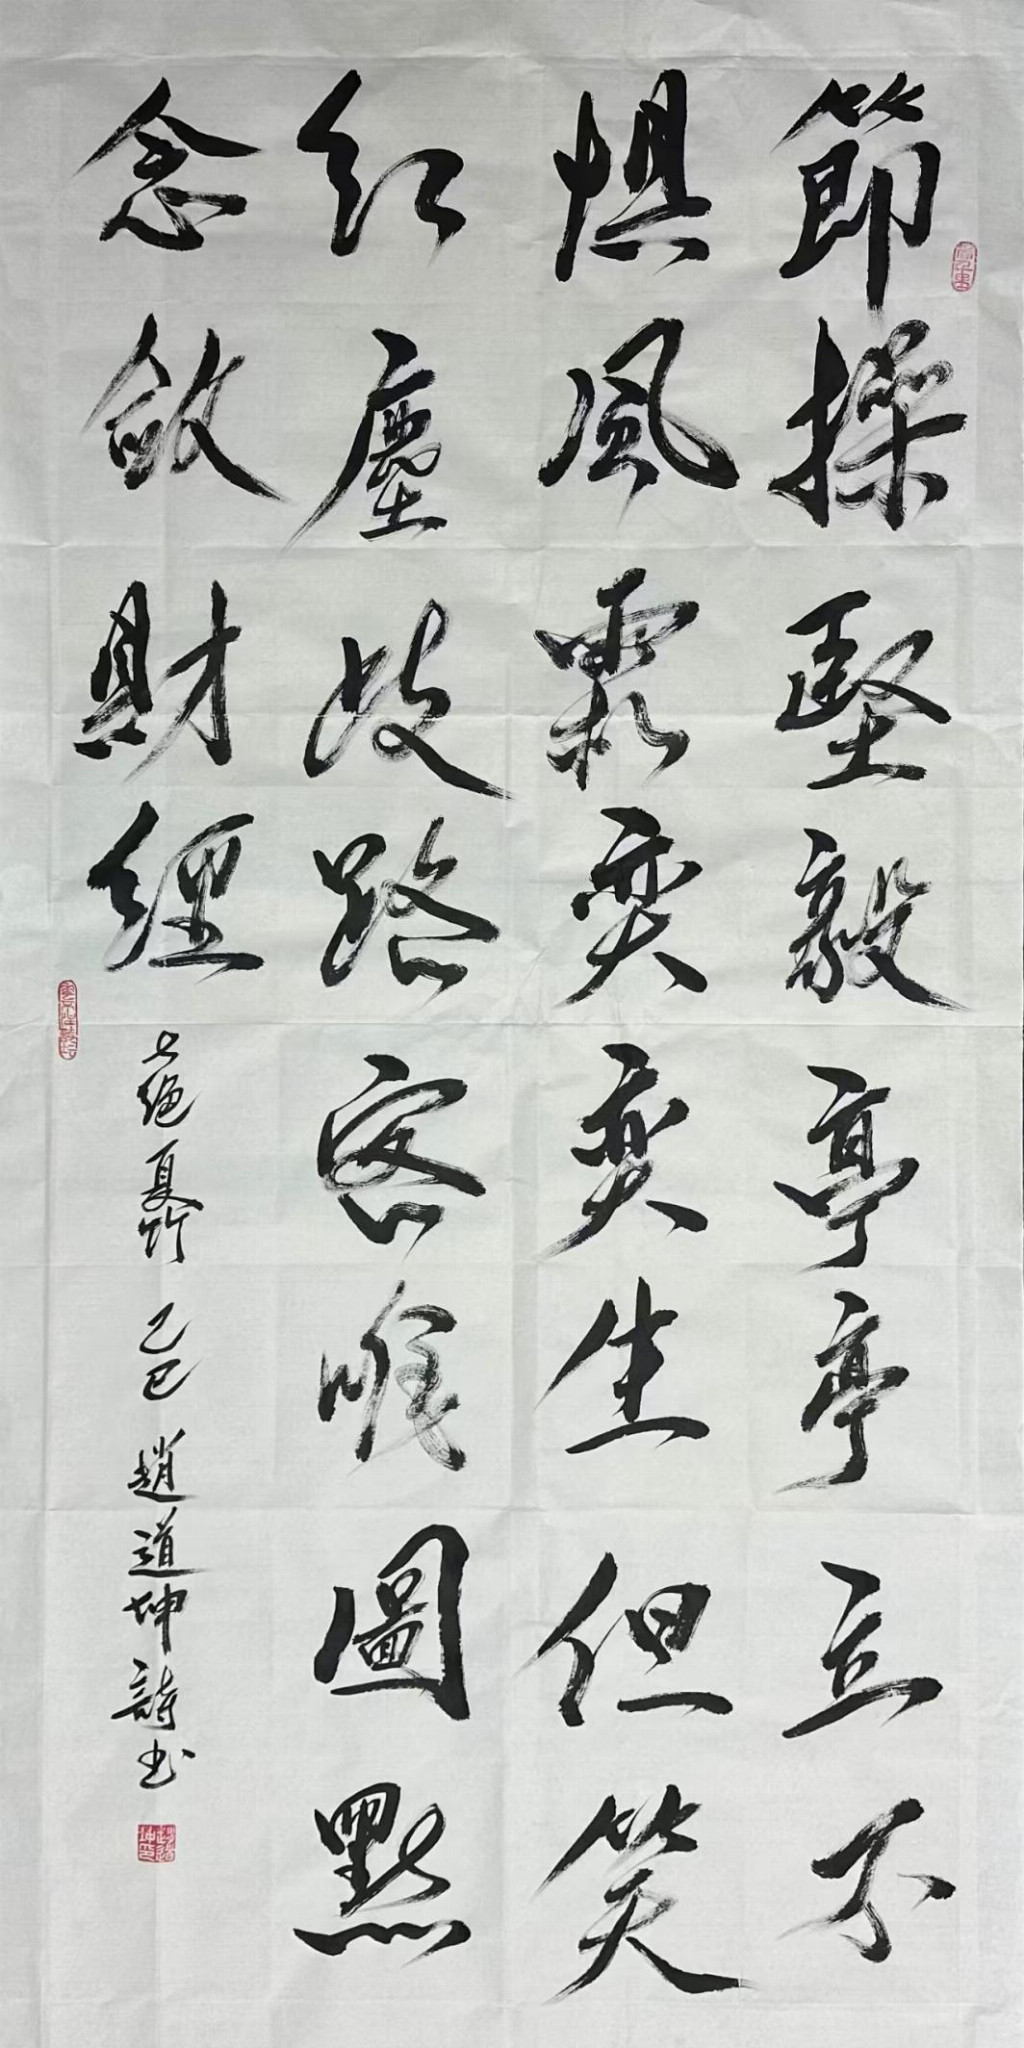 節操堅毅亭亭立不
懼風霜奕奕生但笑
紅塵歧路客唯圖點
念斂財經
七絕夏竹 乙巳 趙道坤詩书